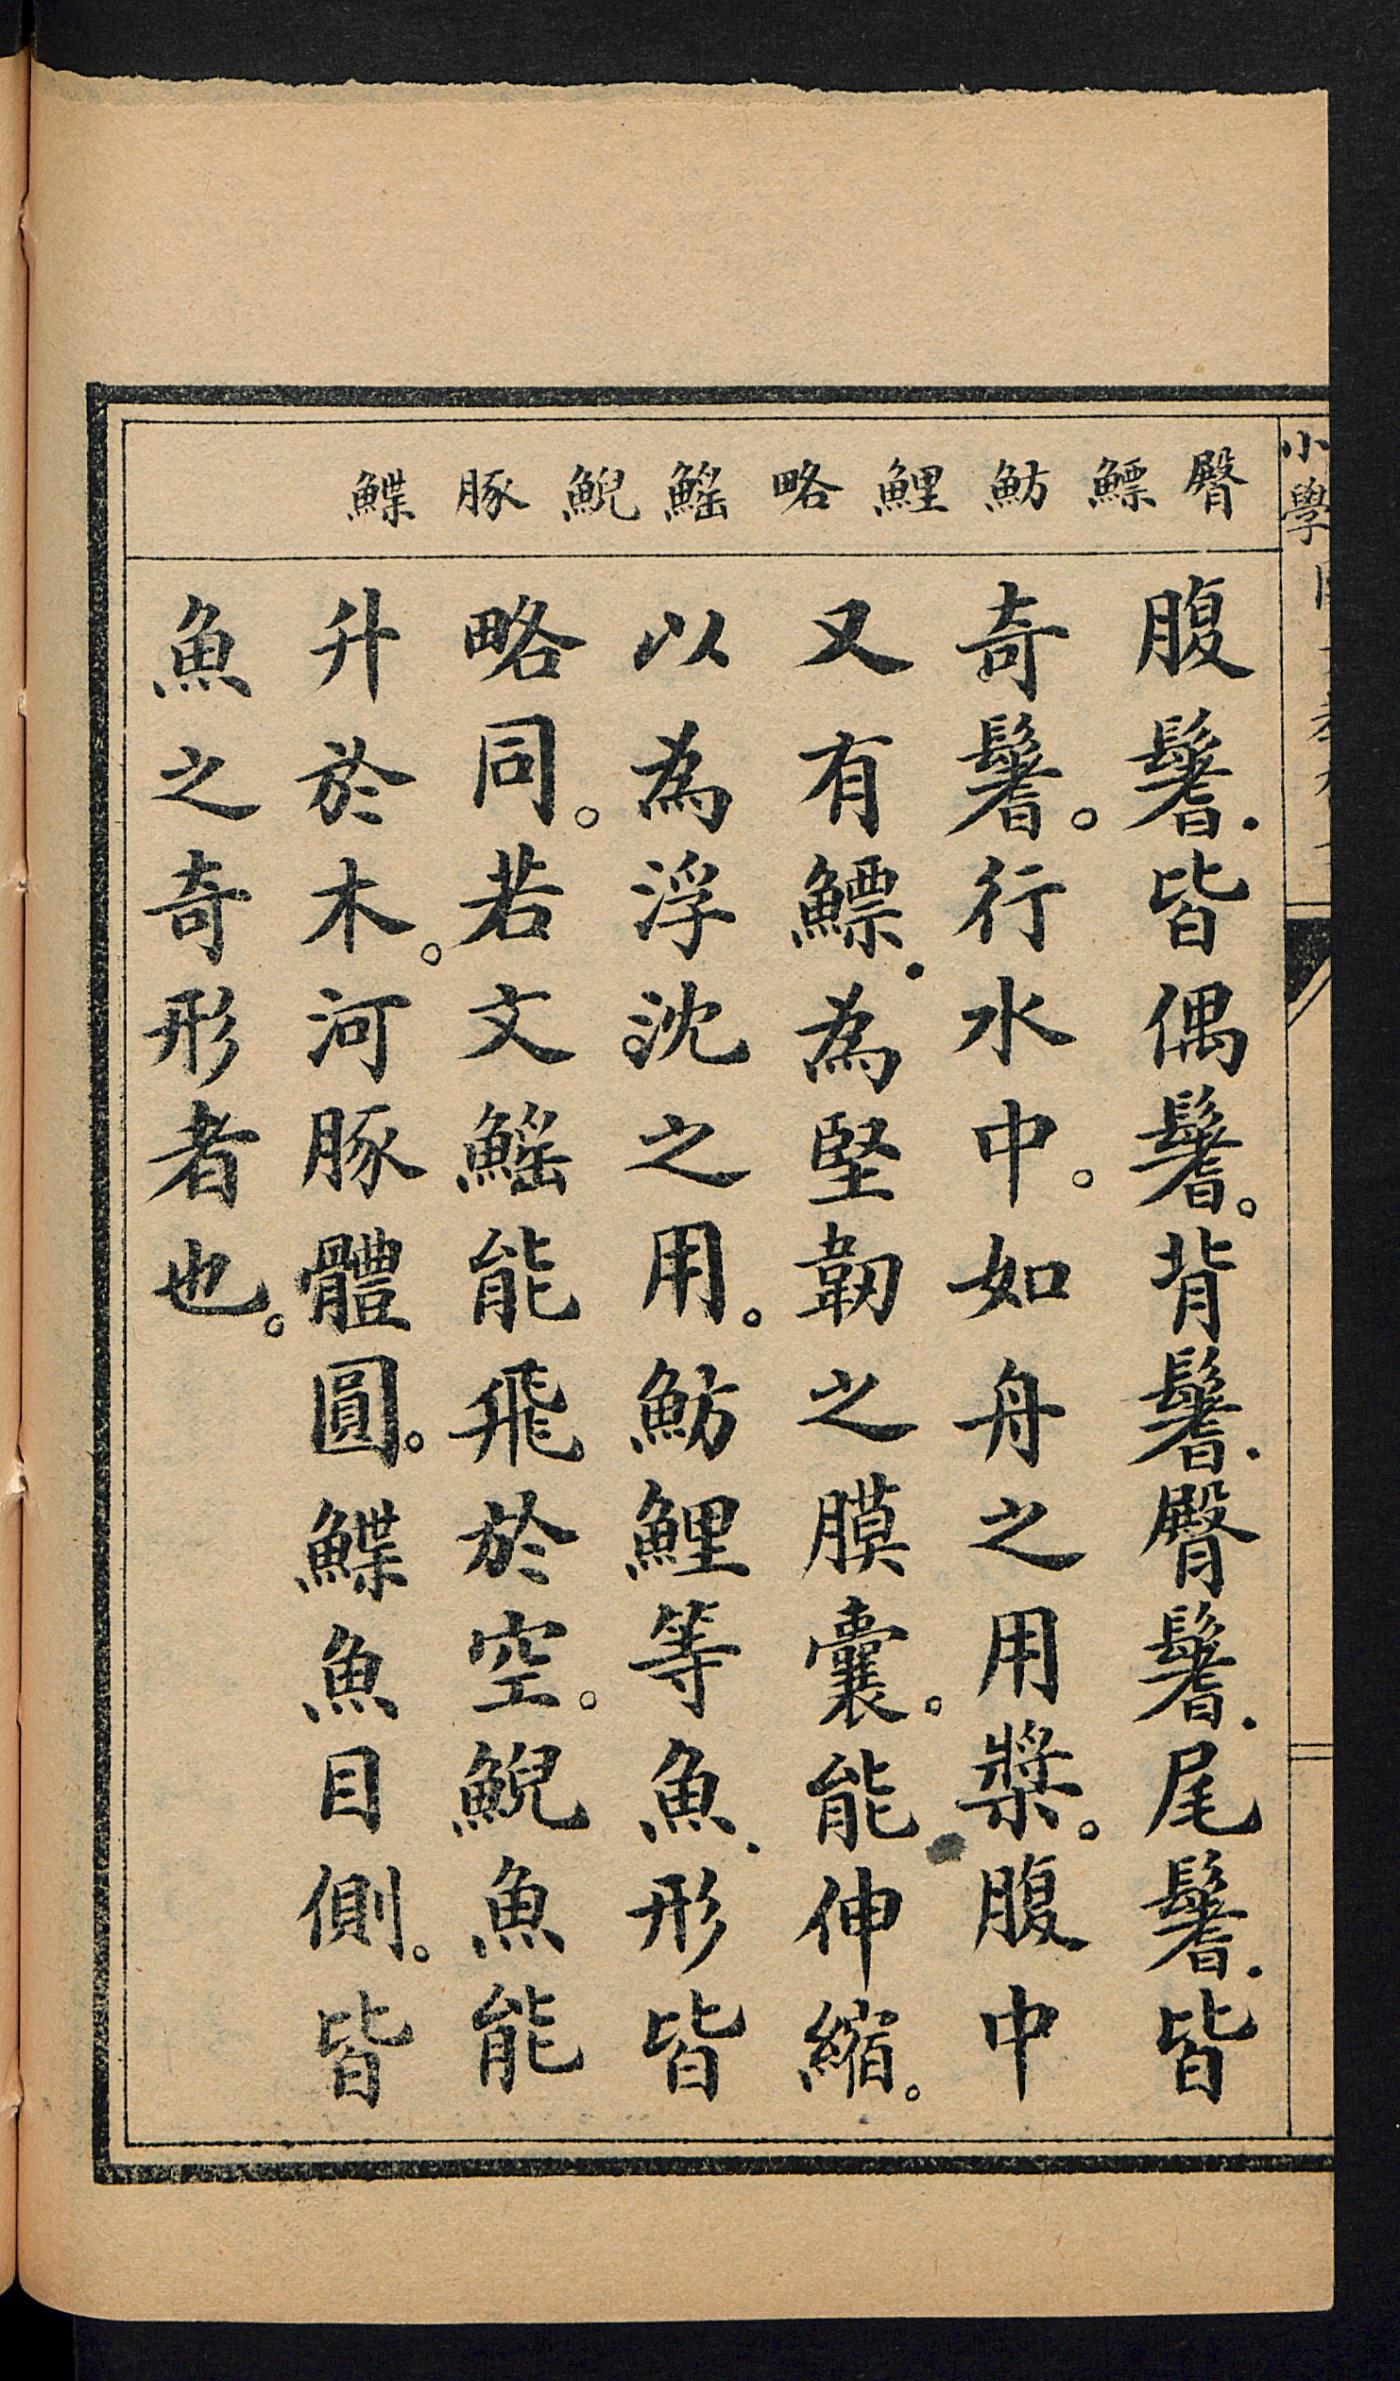 小學
臀鰾魴鯉略鰩鯢豚鰈
腹鬐.皆偶鬐。背鬐.臀鬐.尾鬐.皆
奇鬐。行水中。如舟之用槳。腹中
又有鰾.為堅韌之膜囊。能伸縮。
以為浮沈之用。魴鯉等魚.形皆
略同。若文鰩能飛於空。鯢魚能
升於木。河豚體圓。鰈魚目側。皆
魚之奇形者也。